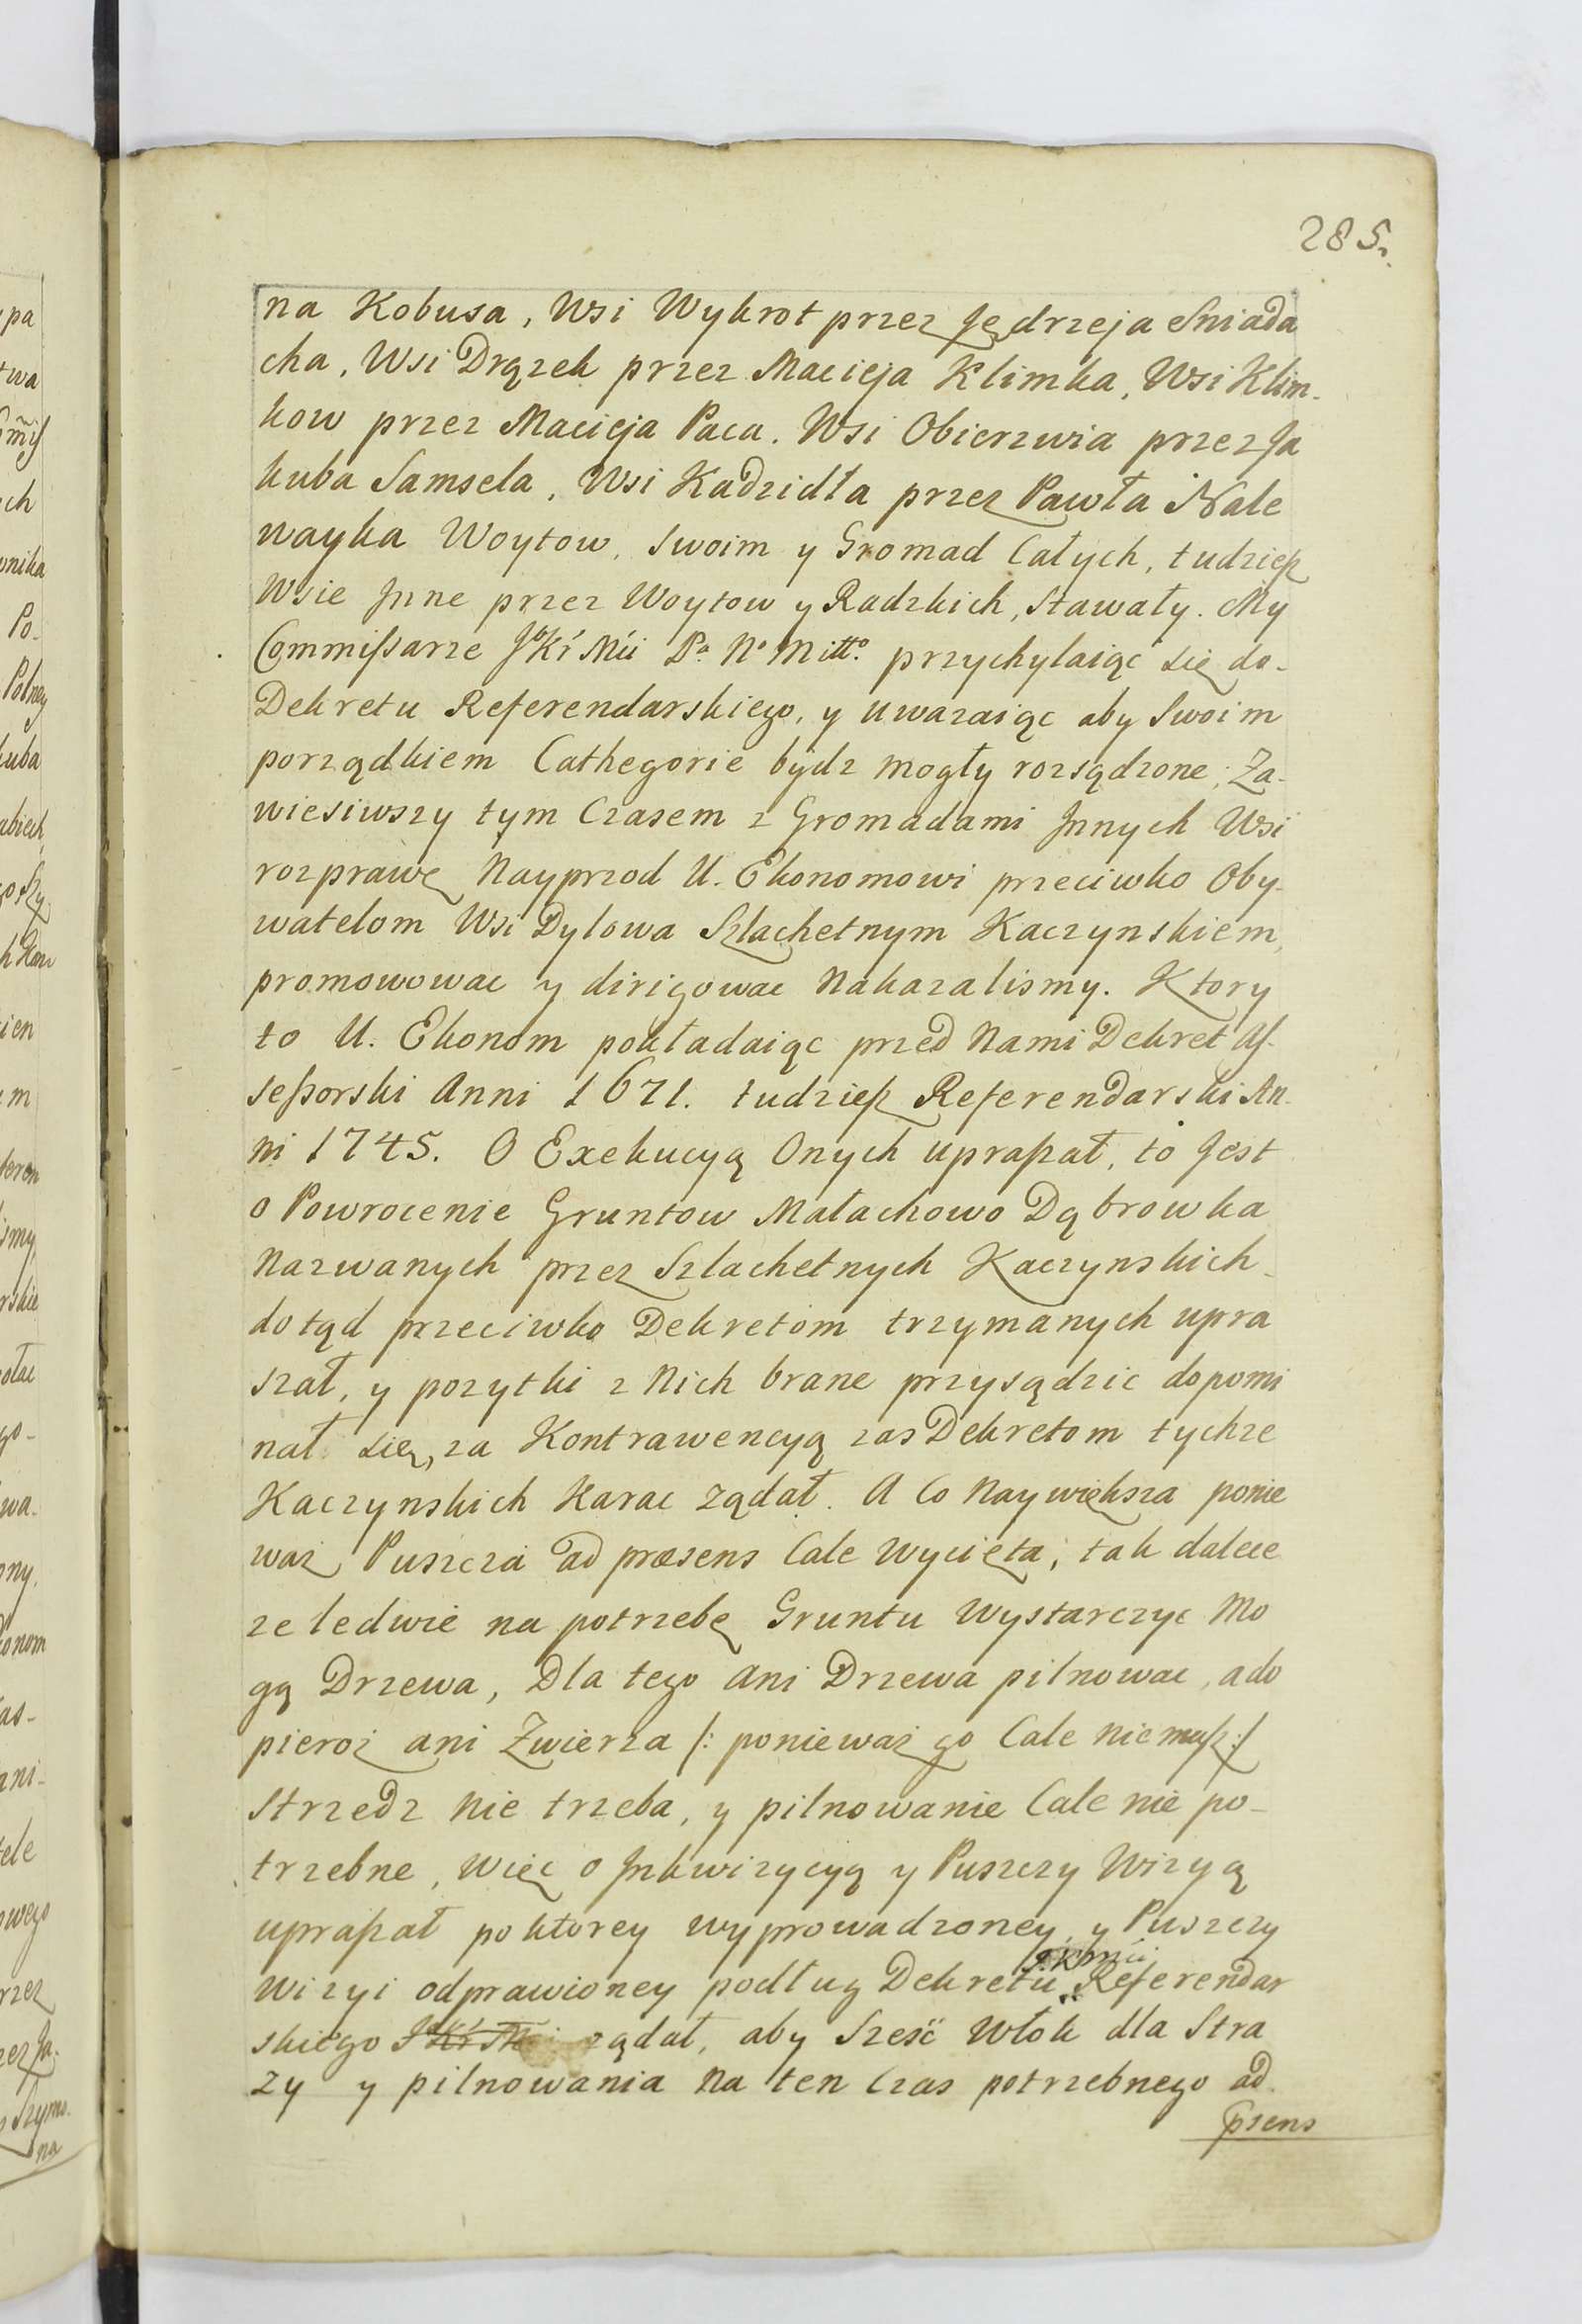 285.
na Kobusa, Wsi Wykrot przez Jędrzeja Sniada
cha, Wsi Drązek przez Macieja Klimka, Wsi Klim-
kow przez Macieja Paca. Wsi Obierzwia przez Ja
kuba Samsela, Wsi Kadzidła przez Pawła Nale
wayka Woytow, swoim y Gromad Całych, tudzieß
Wsie Jnne przez Woytow y Radzkich, stawały. My
Commißarze JoKr Mci Pa No Mitto przychylaiąc się do-
Dekretu Referendarskiego, y uwazaiąc aby Swoim
porządkiem Cathegorie bydz mogły rozsądzone, Za-
wiesiwszy tym Czasem z Gromadami Jnnych Wsi
rozprawę Nayprzod U. Ekonomowi przeciwko Oby-
watelom Wsi Dylowa Szlachetnym Kaczynskiem,
promowowac y dirigowac Nakazalismy. Ktory
to U. Ekonom pokładaiąc przed Nami Dekret Aſ-
seßorski Anni 1671. tudzieß Referendarski An-
ni 1745. O Exekucyą Onych upraßał, to Jest
o Powrocenie Gruntow Małachowo Dąbrowka
Nazwanych przez Szlachetnych Kaczynskich-
dotąd przeciwko Dekretom trzymanych upra
szał, y pozytki z Nich brane przysądzic dopomi
nał się, za Kontrawencyą zas Dekretom tychze
Kaczynskich Karac ządał. A Co Naywiększa ponie
waz Puszcza ad præsens Cale Wycięta, tak dalece
ze ledwie na potrzebę Gruntu Wystarczyc Mo
gą Drzewa, Dla tego Ani Drzewa pilnowac, a do
pieroz ani Zwierza /: poniewaz go Cale niemaß :/
Strzedz Nie trzeba, y pilnowanie Cale nie po-
trzebne, Więc o Jnkwizycyą y Puszczy Wizyą
upraßał po ktorey wyprowadzoney, y Puszczy
J. K Mci
Wizyi odprawioney podług Dekretu Referendar
skiego JoKr Mci ządał, aby Szesć Włok dla Stra
zy y pilnowania Na ten Czas potrzebnego ad.
pzens